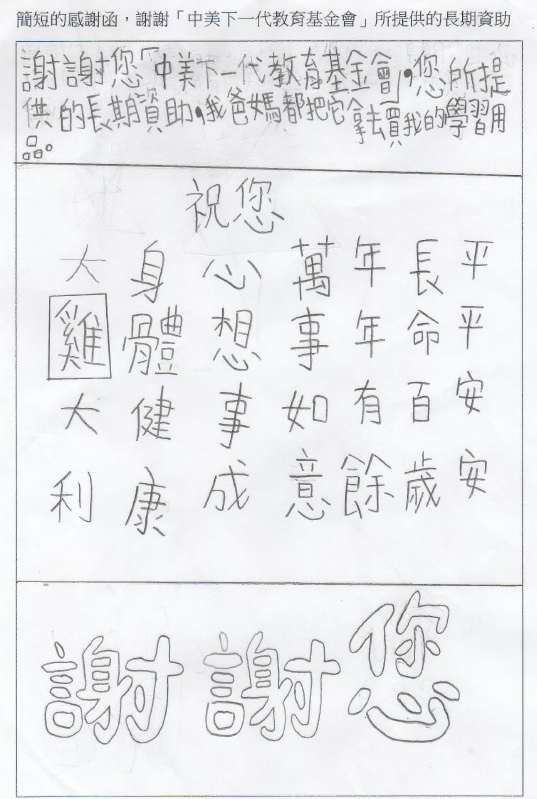 簡短的感謝函，謝謝「中美下一代教育基金會」所提供的長期資助
謝謝您「中美下一代教育基金會」，您所提
供的長期資助，我爸媽都把它拿去買我的學習用
品。
祝您
平平安安
長命百歲
年年有餘
萬事如意
心想事成
身體健康
大雞大利
謝謝您